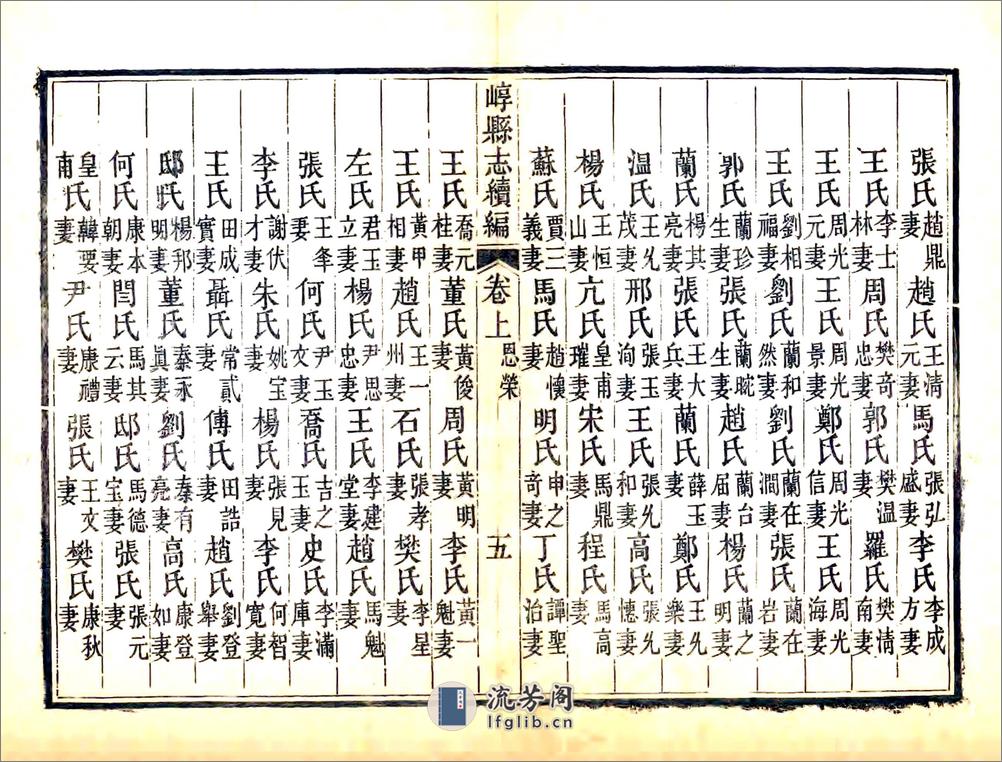 張氏趙鼎妻 趙氏王清元妻 馬氏張弘盛妻 李氏李成方妻
王氏李士林妻 周氏樊奇忠妻 郭氏樊溫妻 羅氏樊清南妻
王氏周光元妻 王氏周光景妻 鄭氏周光信妻 王氏周光海妻
王氏劉相福妻 劉氏蘭和然妻 劉氏蘭在澗妻 張氏蘭在岩妻
郭氏蘭珍生妻 張氏蘭眈生妻 趙氏蘭台屆妻 楊氏蘭之明妻
蘭氏楊其亮妻 張氏王大兵妻 蘭氏薛玉妻 鄭氏王允樂妻
溫氏王允茂妻 邢氏張玉洵妻 王氏張允和妻 高氏張允德妻
楊氏王恒山妻 亢氏皇甫璀妻 宋氏馬鼎妻 程氏馬高妻
蘇氏賈三義妻 馬氏趙懷妻 明氏申之奇妻 丁氏譚聖治妻
崞縣志續編 卷上 恩榮 五
王氏喬元桂妻 董氏黃俊妻 周氏黃明妻 李氏黃一魁妻
王氏黃甲相妻 趙氏王一州妻 石氏張孝妻 樊氏李星妻
左氏君玉立妻 楊氏尹思忠妻 王氏李建堂妻 趙氏馬魁妻
張氏王夆妻 何氏尹玉文妻 喬氏吉之玉妻 史氏李滿庫妻
李氏謝伏才妻 朱氏姚宝妻 楊氏張見妻 李氏何智寬妻
王氏田成實妻 聶氏常貳妻 傅氏田誥妻 趙氏劉登舉妻
邸氏楊邦明妻 董氏秦承眞妻 劉氏秦有亮妻 高氏康登如妻
何氏康本朝妻 閆氏馬其云妻 邸氏馬德宝妻 張氏張元妻
皇甫氏韓要妻 尹氏康禮妻 張氏王文妻 樊氏康秋妻
流芳阁
lfglib.cn